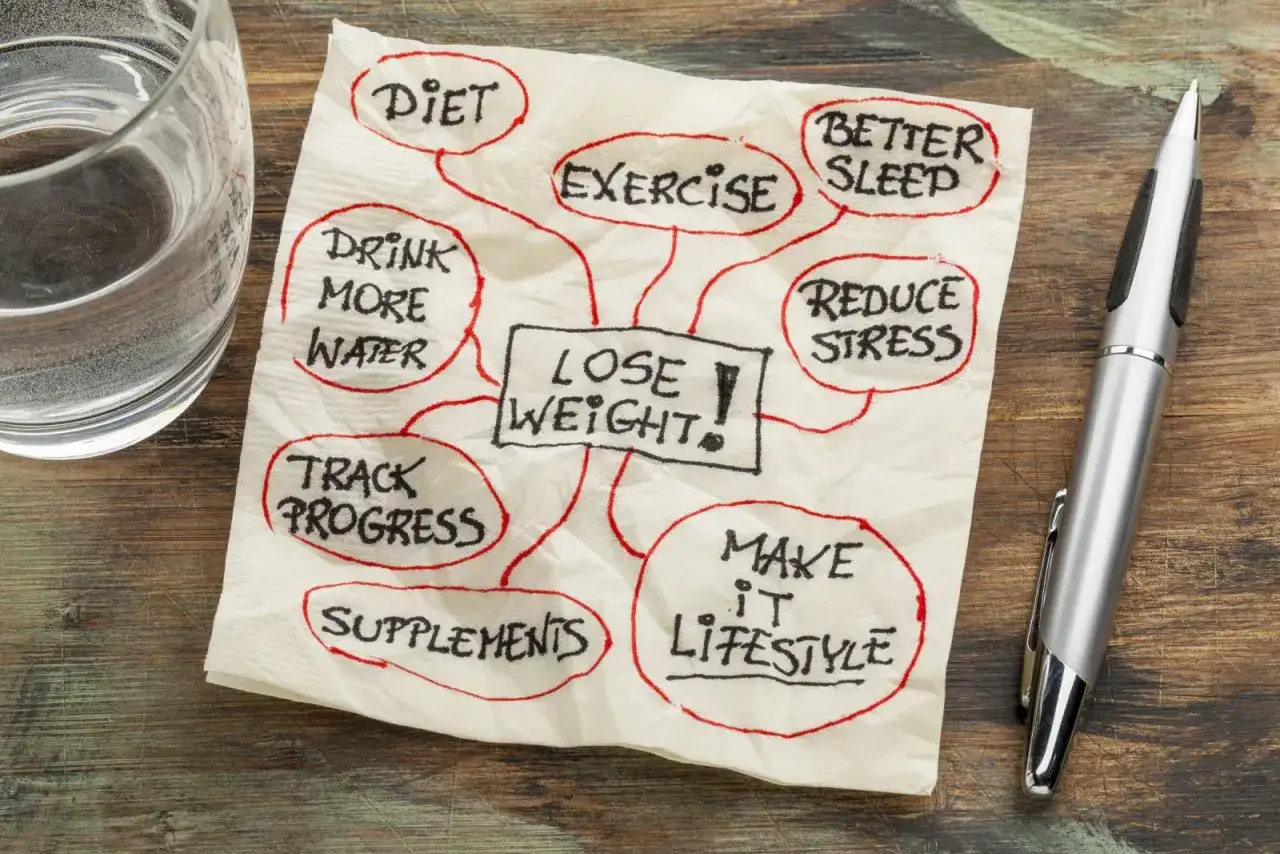 DiET
EXERCiSE
BETTER
SLEEP
DRiNK
MORE
WATER
REDUCE
STRESS
LOSE
WEiGHT!
TRACK
PROGRESS
SUPPLEMENTS
MAKE
iT
LiFESTYLE